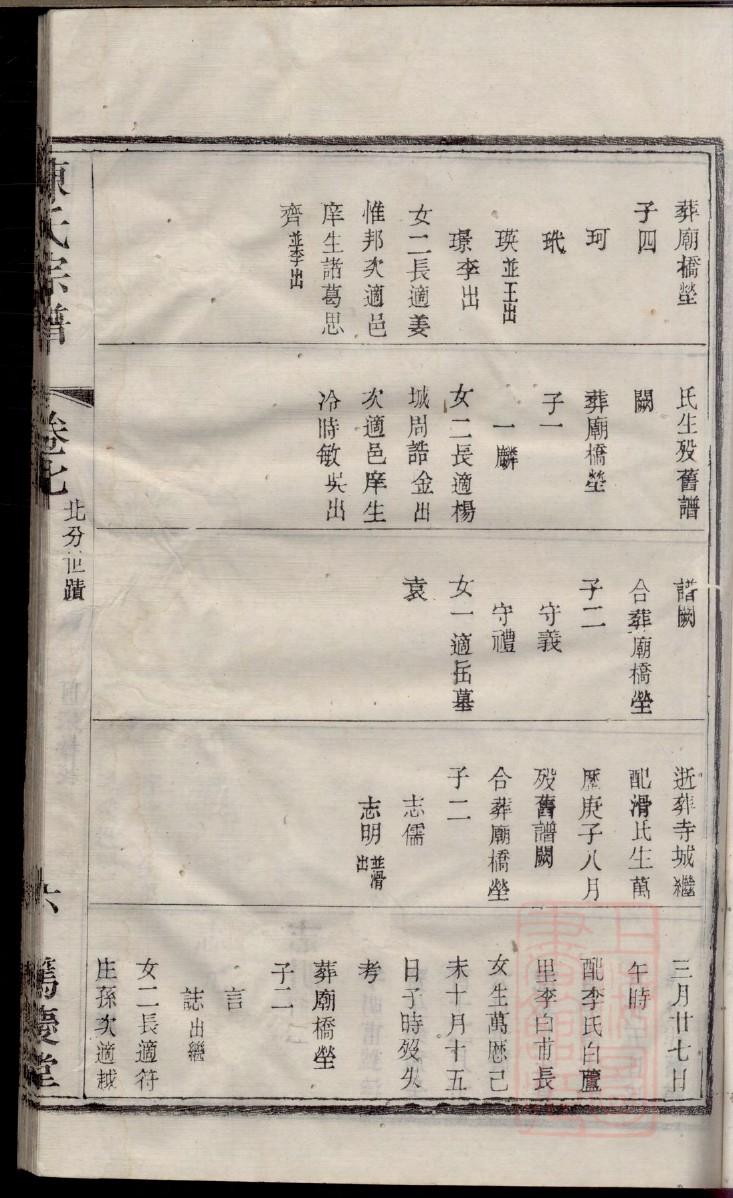 葬廟橋塋
子四
珂
玳
瑛並王出
璟李出
女二長適姜
惟邦次適邑
庠生諸葛思
齊並李出
氏生殁舊譜
闕
葬廟橋塋
子一
一麟
女二長適楊
城周誥金出
次適邑庠生
冷時敏吳出
譜闕
合葬廟橋塋
子二
守義
守禮
女一適岳墓
袁
逝葬寺城繼
配滑氏生萬
厯庚子八月
殁舊譜闕
合葬廟橋塋
子二
志儒
志明並滑出
三月廿七日
午時
配李氏白蘆
里李白甫長
女生萬厯己
未十月十五
日子時殁失
考
葬廟橋塋
子二
言
誌出繼
女二長適符
庄孫次適越
陳氏宗譜
卷七
北分世蹟
六
篤慶堂